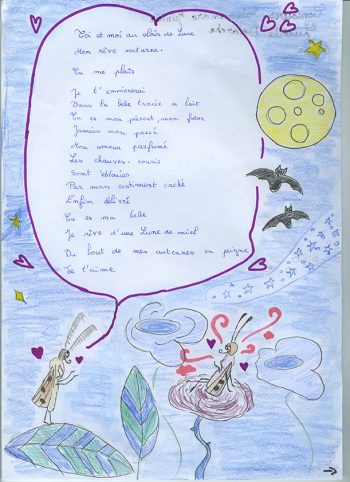 Toi et moi au clair de Lune
Mon rêve nocturne.
Tu me plais
Je t'emmenerai
Dans la belle tracée de lait
Tu es mon présent, mon futur
Jamais mon passé
Mon amour parfumé
Les chauves-souris
Sont éblouies
Par mon sentiment caché
Enfin délivré
Tu es ma belle
Je rêve d'une Lune de miel
Du haut de mes antennes en peigne
Je t'aime